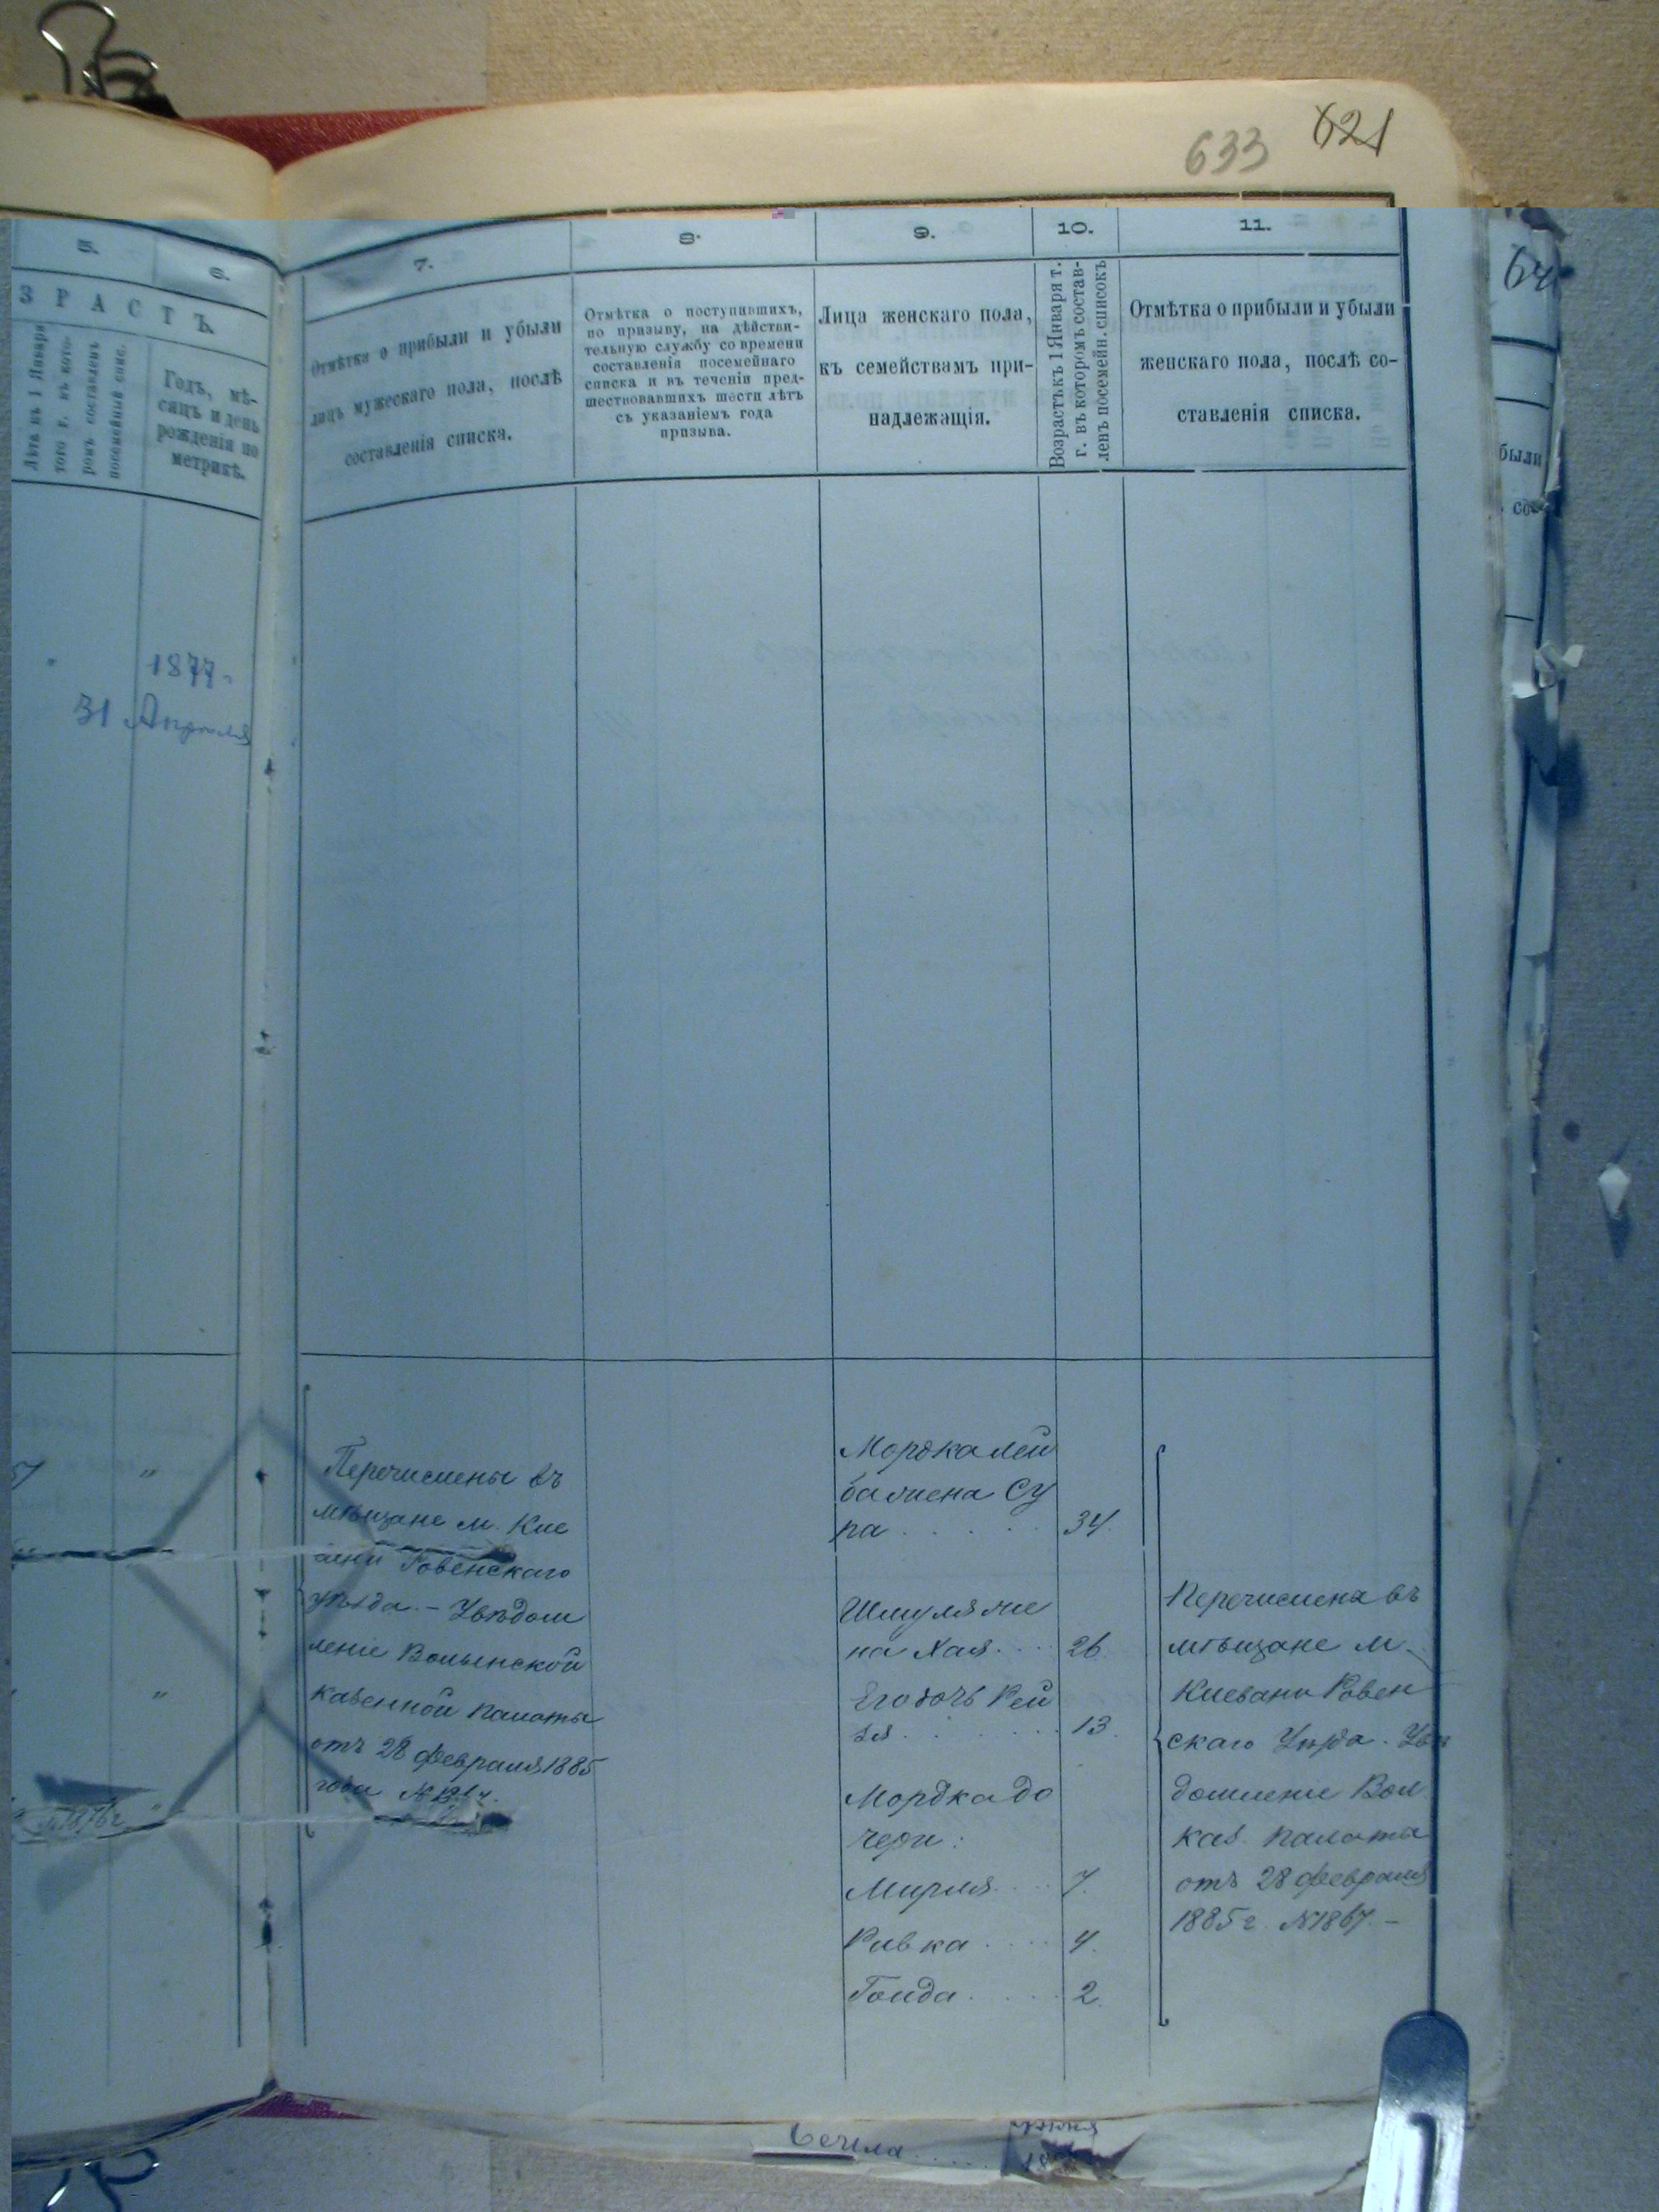 633 621
5.
6.
7.
8.
9.
10.
11.
ЗРАСТЪ.
Лѣта къ 1 Января
того г. въ кото-
ромъ составленъ
посемейный спис.
Годъ, мѣ-
сяцъ и день
рожденія по
метрикѣ.
Отмѣтка о прибыли и убыли
лицъ мужескаго пола, послѣ
составленія списка.
Отмѣтка о поступившихъ,
по призыву, на дѣйстви-
тельную службу со времени
составленія посемейнаго
списка и въ теченіи пред-
шествовавшихъ шести лѣтъ
съ указаніемъ года
призыва.
Лица женскаго пола,
къ семействамъ при-
надлежащія.
Возрастъ къ 1 Января т.
г. въ которомъ состав-
ленъ посемейн. списокъ
Отмѣтка о прибыли и убыли
женскаго пола, послѣ со-
ставленія списка.
64
были
со-
1877
31 Апрѣля
Перечислены въ
мѣщане м. Кле
вани Ровенскаго
уѣзда. - Увѣдом
леніе Волынской
казенной палаты
отъ 28 февраля 1885
года №
1876 г
Мордка Лей
ба жена Су
ра . . . . . . 34.
Шмуля же
на Хая . . . . 26.
Его дочь Рей
зя . . . . . . 13.
Мордка до
чери:
Мирля . . . . 7.
Ривка . . . . 4.
Голда . . . . . 2.
Перечислена въ
мѣщане м.
Клевани Ровен
скаго Уѣзда. Увѣ
домленіе Вол.
каз. палаты
отъ 28 февраля
1885 г. № 1867. -